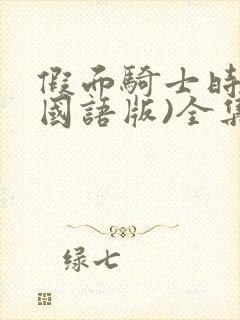 假而騎士時
國語版)全集
绿七